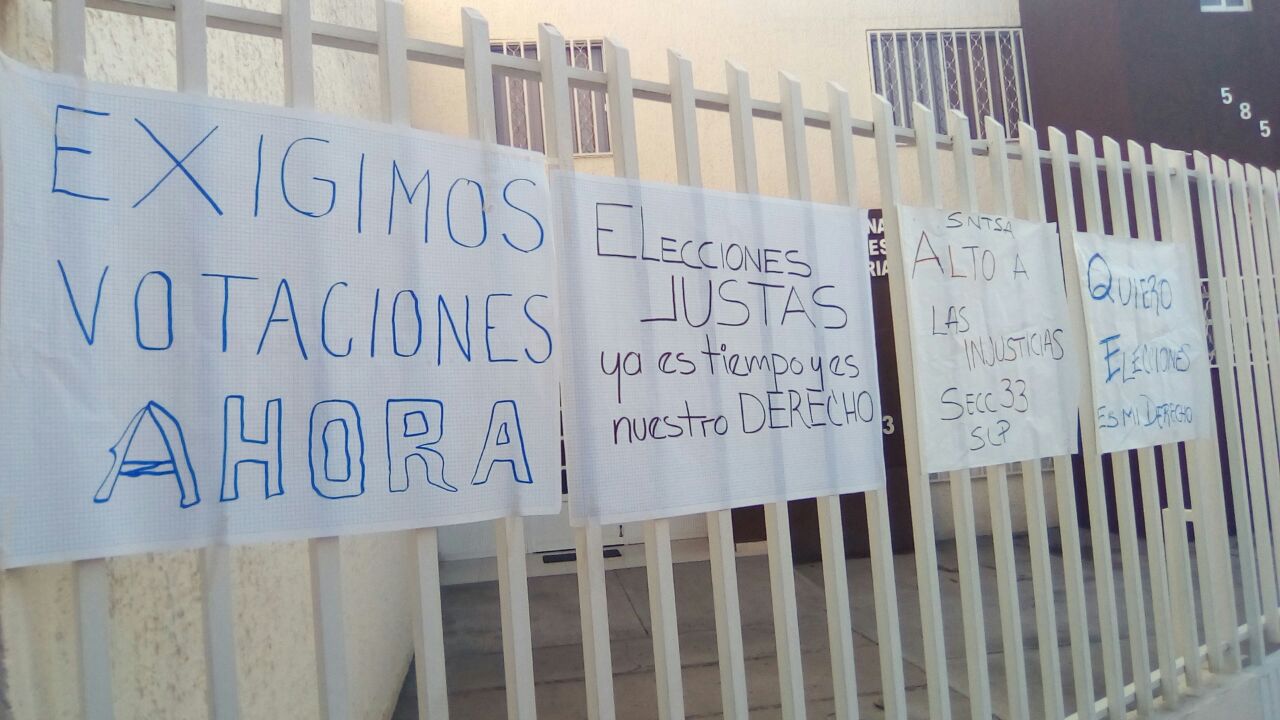 EXIGIMOS
VOTACIONES
AHORA
ELECCIONES
JUSTAS
ya es tiempo y es
nuestro DERECHO
SNTSA
ALTO A
LAS
INJUSTICIAS
SECC 33
SLP
QUIERO
ELECCIONES
ES MI DERECHO
585